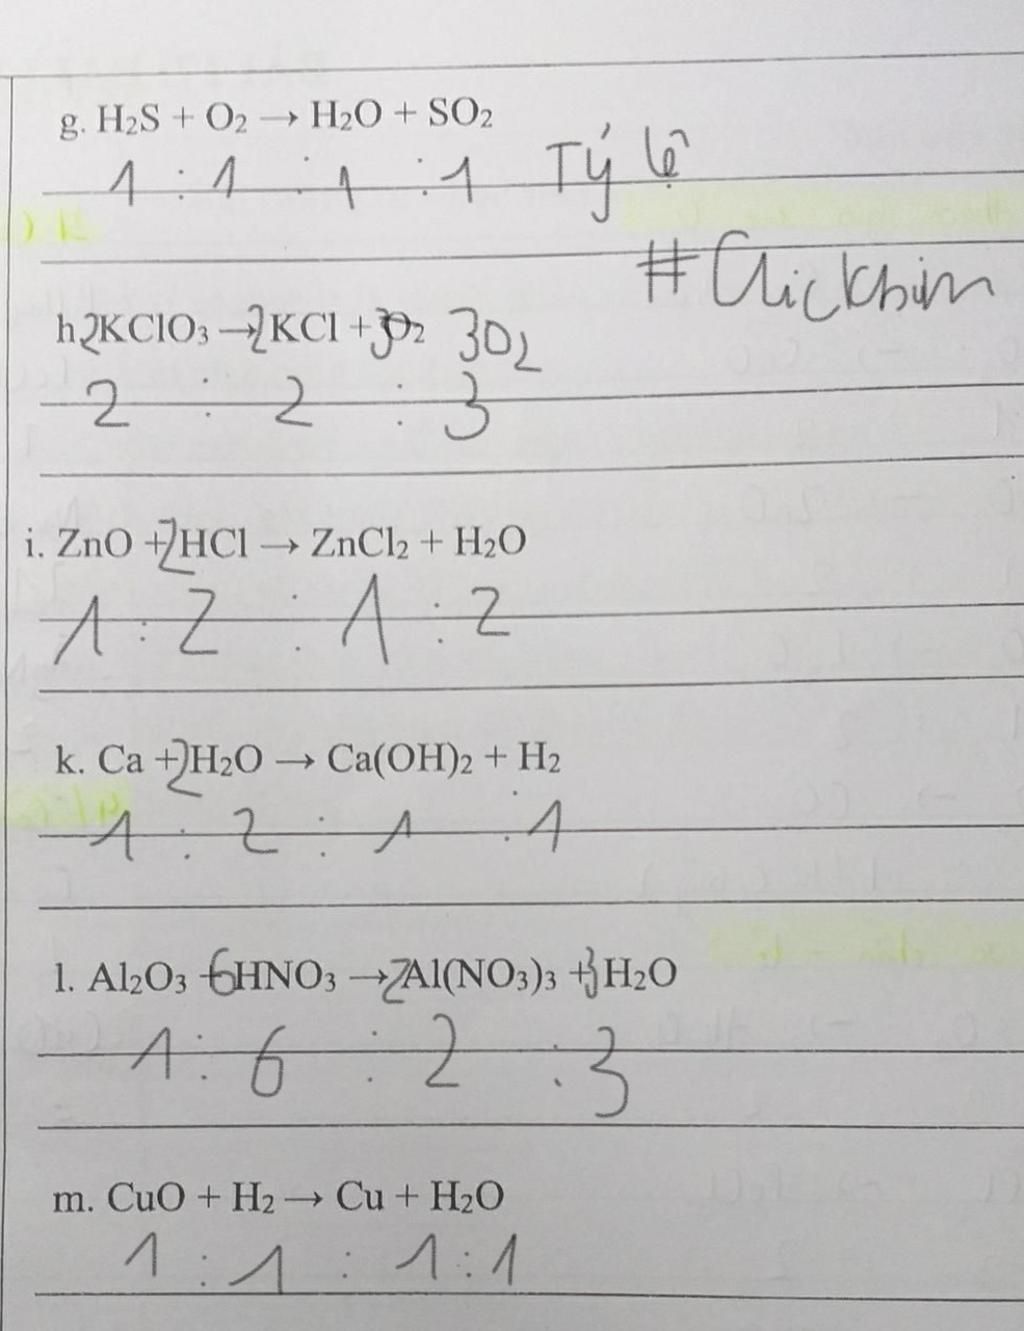 g. H2S + O2 → H2O + SO2
1 : 1 : 1 : 1 Tỷ lệ
h.2KClO3 →2KCl +3O2 3O2
2 : 2 : 3
i. ZnO +2HCl → ZnCl2 + H2O
1 : 2 : 1 : 2
k. Ca +2H2O → Ca(OH)2 + H2
1 : 2 : 1 : 1
l. Al2O3 +6HNO3 →2Al(NO3)3 +3H2O
1 : 6 : 2 : 3
m. CuO + H2 → Cu + H2O
1 : 1 : 1 : 1